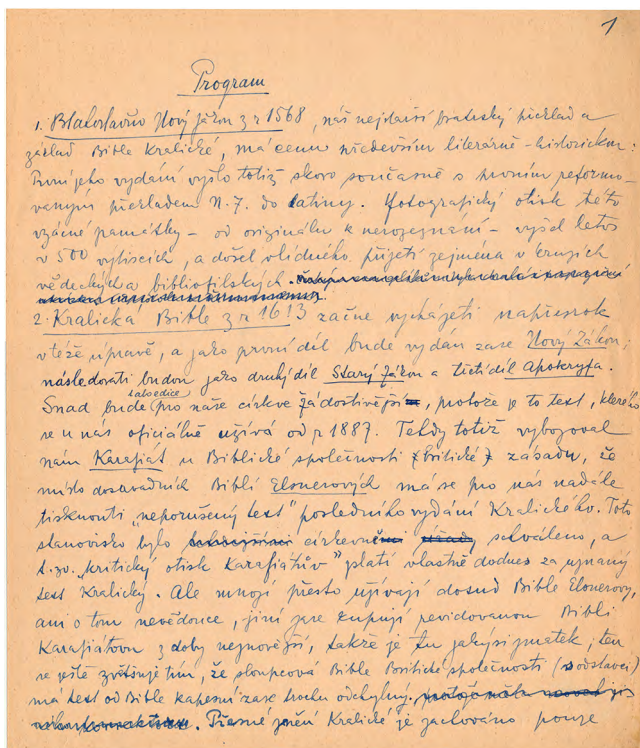 1
Program
1. Blahoslavův Nový Zákon z r 1568, náš nejstarší bratrský překlad a
základ Bible Kralické, má cenu především literárně-historickou:
První jeho vydání vyšlo totiž skoro současně s prvním reformo-
vaným překladem N.Z. do latiny. Fotografický otisk této
vzácné památky - od originálu k nerozeznání - vyšel letos
v 500 výtiscích, a došel vlídného přijetí zejména v kruzích
vědeckých a bibliofilských.
2. Kralická Bible z r 1613 začne vycházeti napřesrok
v téže úpravě, a jako první díl bude vydán zase Nový Zákon;
následovati budou jako druhý díl Starý Zákon a třetí díl Apokryfa.
Snad bude tato edice pro naše církve žádostivější, protože je to text, kterého
se u nás oficiálně užívá od r 1887. Tehdy totiž vybojoval
nám Karafiát u Biblické společnosti (britické) zásadu, že
místo dosavadních Biblí Elsnerových má se pro nás nadále
tisknouti „neporušený text" posledního vydání Kralického. Toto
stanovisko bylo církevně schváleno, a
t. zv. „kritický otisk Karafiátův" platí vlastně dodnes za uznaný
text Kralický. Ale mnozí přesto užívají dosud Bible Elsnerovy,
ani o tom nevědouce, jiní zase kupují revidovanou Bibli
Karafiátovu z doby nejnovější, takže je tu jakýsi zmatek; ten
se ještě zvětšuje tím, že sloupcová Bible Britické společnosti (s odstavci)
má text od Bible kapesní zase trochu odchylný.
Přesné znění Kralické je zachováno pouze